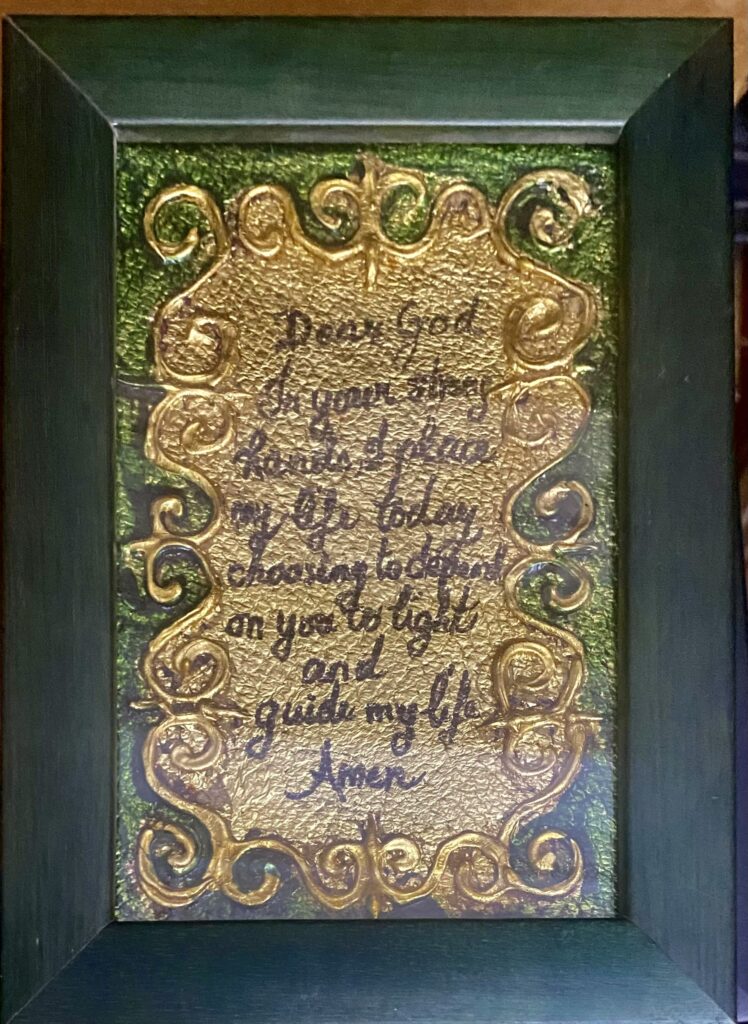 Dear God
In your strong
hands, I place
my life today
choosing to depend
on you to light
and
guide my life
Amen